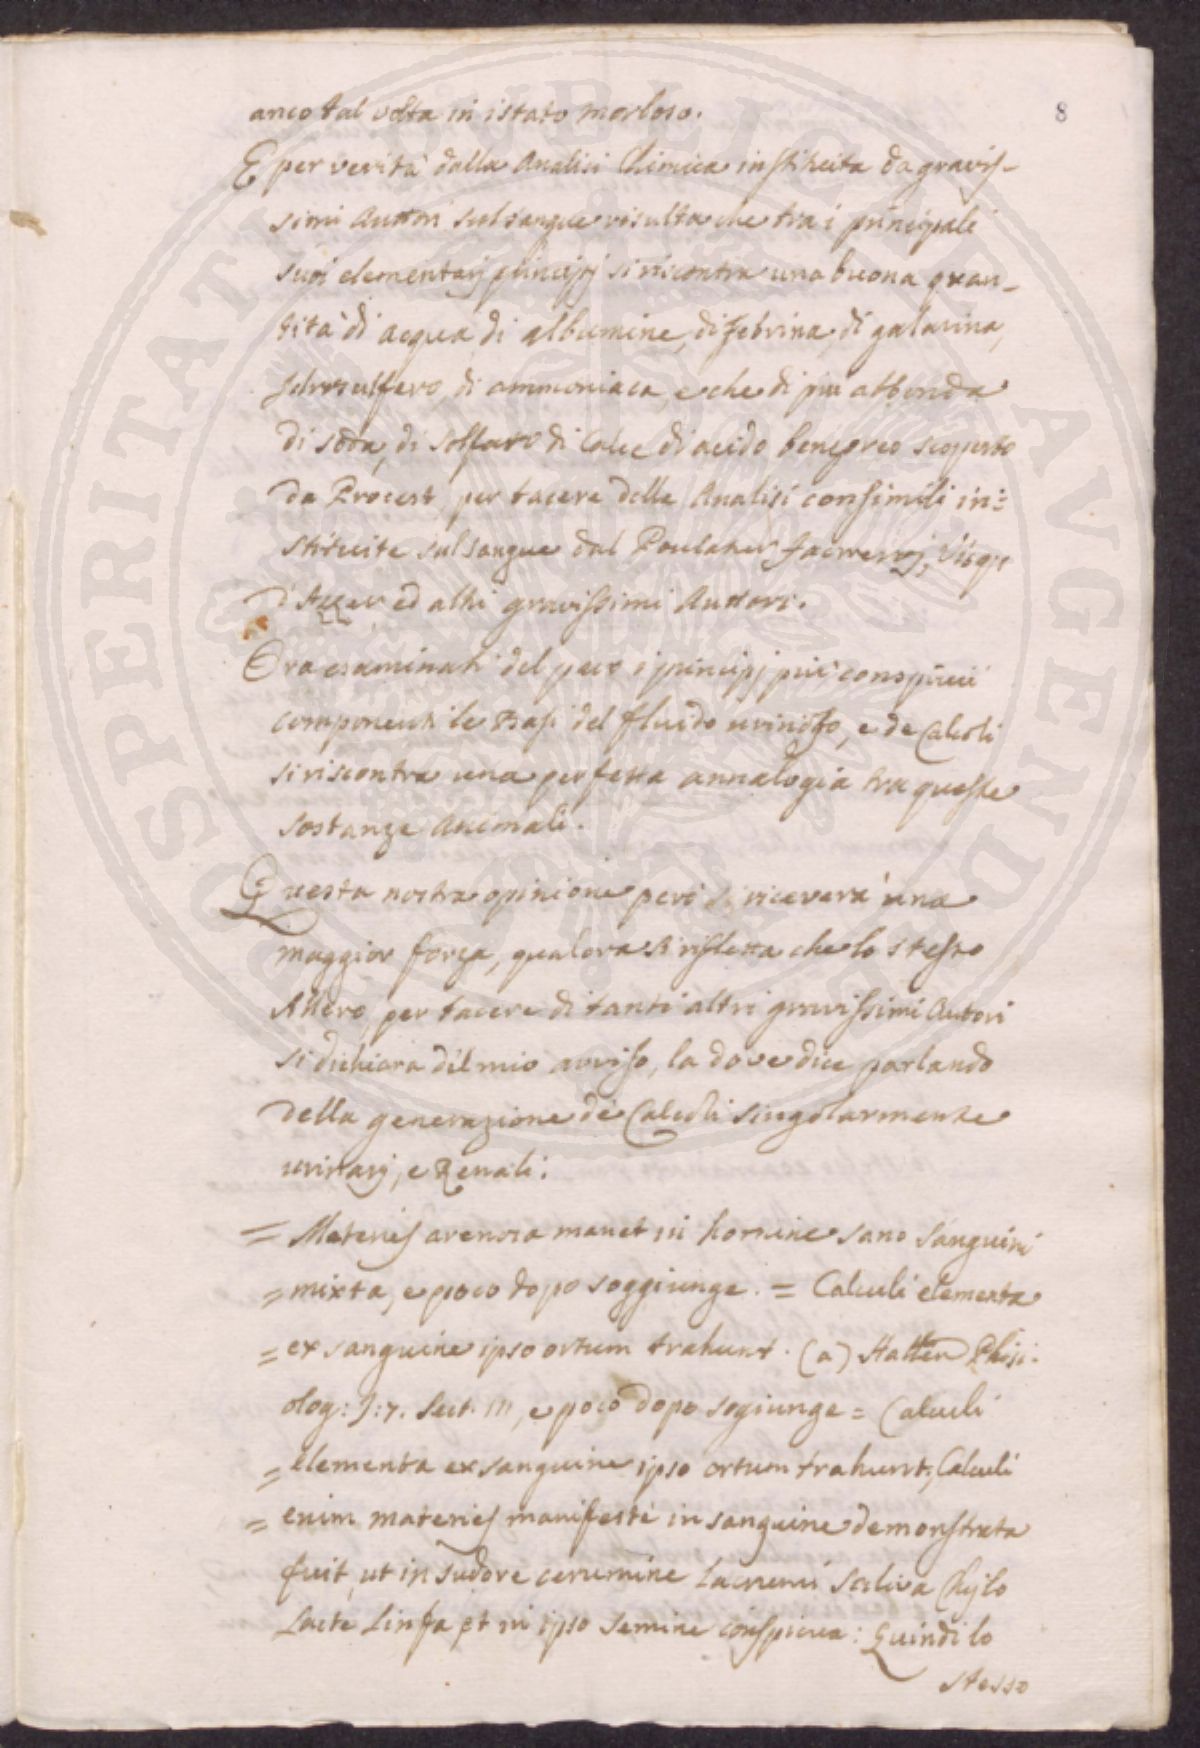 8
anco tal volta in istato morboso.
E per verità dalla Analisi Chimica instituita da gravis-
simi Auttori sul sangue risulta che tra i principali
suoi elementarj principj si riscontra una buona quan-
tità di acqua, di albumine, di febrina, di galatina,
di ammoniaca, e che di più abbonda
di soda, di solfato di Calce di acido scoperto
da Proust, per tacere delle Analisi consimili in=
stituite sul sangue dal Vicqs
D'Azzer ed altri gravissimi Auttori.
Ora esaminati del pari i principj più conspicui
componenti le Basi del fluido urinoso, e de Calcoli
si riscontra una perfetta annalogia tra queste
sostanze Animali.
Questa nostra opinione però si riceverà una
maggior forza, qualora si rifletta che lo stesso
Allero, per tacere di tanti altri gravissimi Autori
si dichiara del mio avviso, la dove dice parlando
della generazione de Calcoli singolarmente
urinarj, e Renali:
= Materies arenosa manet in homine sano Sanguini
= mixta, e poco dopo soggiunge. = Calculi elementa
= ex sanguine ipso ortum trahunt. (a) Haller Phisi-
olog: J:7. Sect. III, e poco dopo sogiunge = Calculi
= elementa ex sanguine ipso ortum trahunt, Calculi
= enim materies manifesté in sanguine demonstrata
fuit, ut in sudore cerumine Lacrumi saliva Chylo
Lacte Linfa et in ipso semine conspicua: Quindi lo
stesso
PROSPERITATI PUBLICAE AVGENDAE